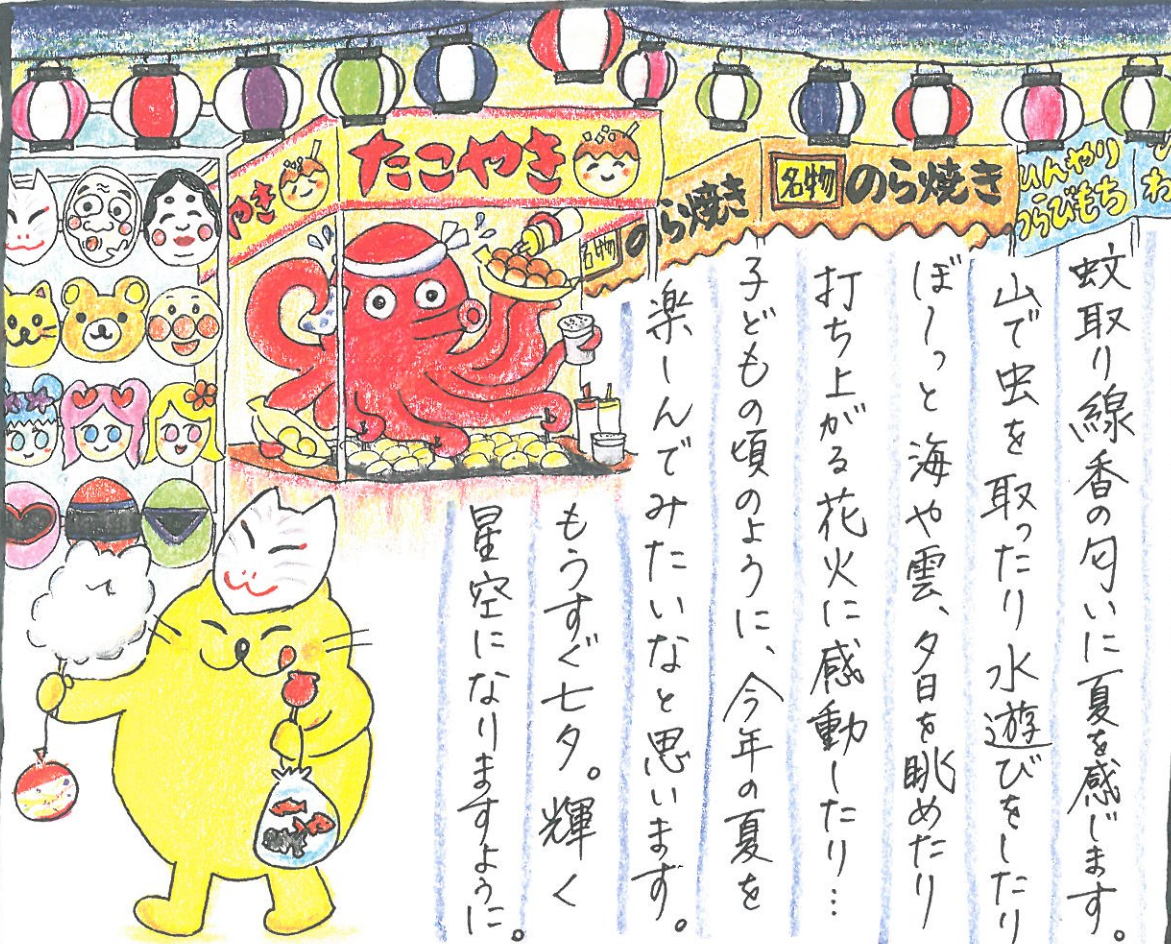 やき
たこやき
名物
のら焼き
名物
のら焼き
ひんやり
つらびもち
蚊取り線香の匂いに夏を感じます。
山で虫を取ったり水遊びをしたり
ぼーっと海や雲、夕日を眺めたり
打ち上がる花火に感動したり…
子どもの頃のように、今年の夏を
楽しんでみたいなと思います。
もうすぐ七夕。輝く
星空になりますように。